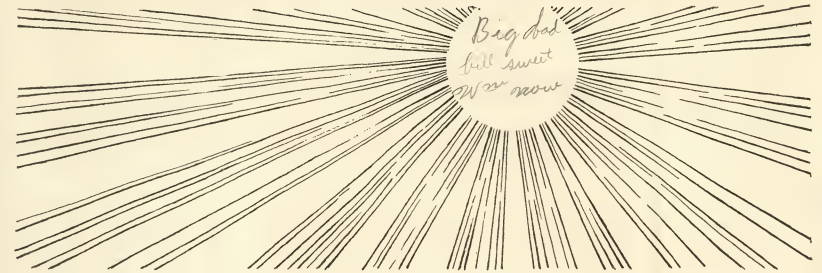 Big dad
bill sweet
Wm now